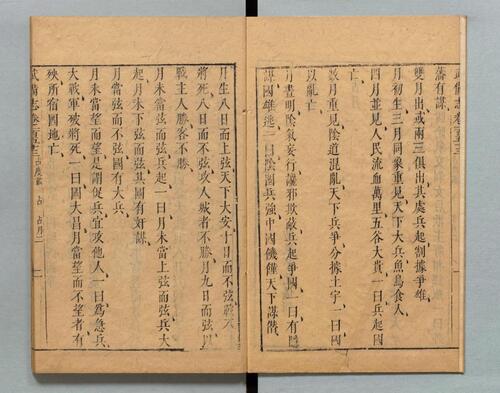 藩有謀
雙月出或兩三俱出其處兵起割據爭雄
月初生三月同象重見天下大兵魚鳥食人
四月並見人民流血萬里五谷大貴一曰兵起國
以亂亡
數月重見陰道混亂天下兵爭分據土宇一曰國
月晝明陰氣妄行讙邪欺蔽兵起爭國一曰有隱
謀國雄逃一曰陰國兵強中國饑饉天下謀僭
月生八日而上弦天下大安十日而不弦戰不
將死八日而不弦攻人城者不勝月九日而弦以
戰主人勝客不勝
月未當弦而弦兵起一曰月未當上弦而弦兵大
起月未下弦而弦其國有奸謀
月當弦而不弦國有大兵
月未當望而望是謂促兵宜攻他人一曰為急兵
大戰軍破將死一曰國大昌月當望而不望者有
殃所宿國地亡
武備志卷一百五十三
占度載
占
占月二